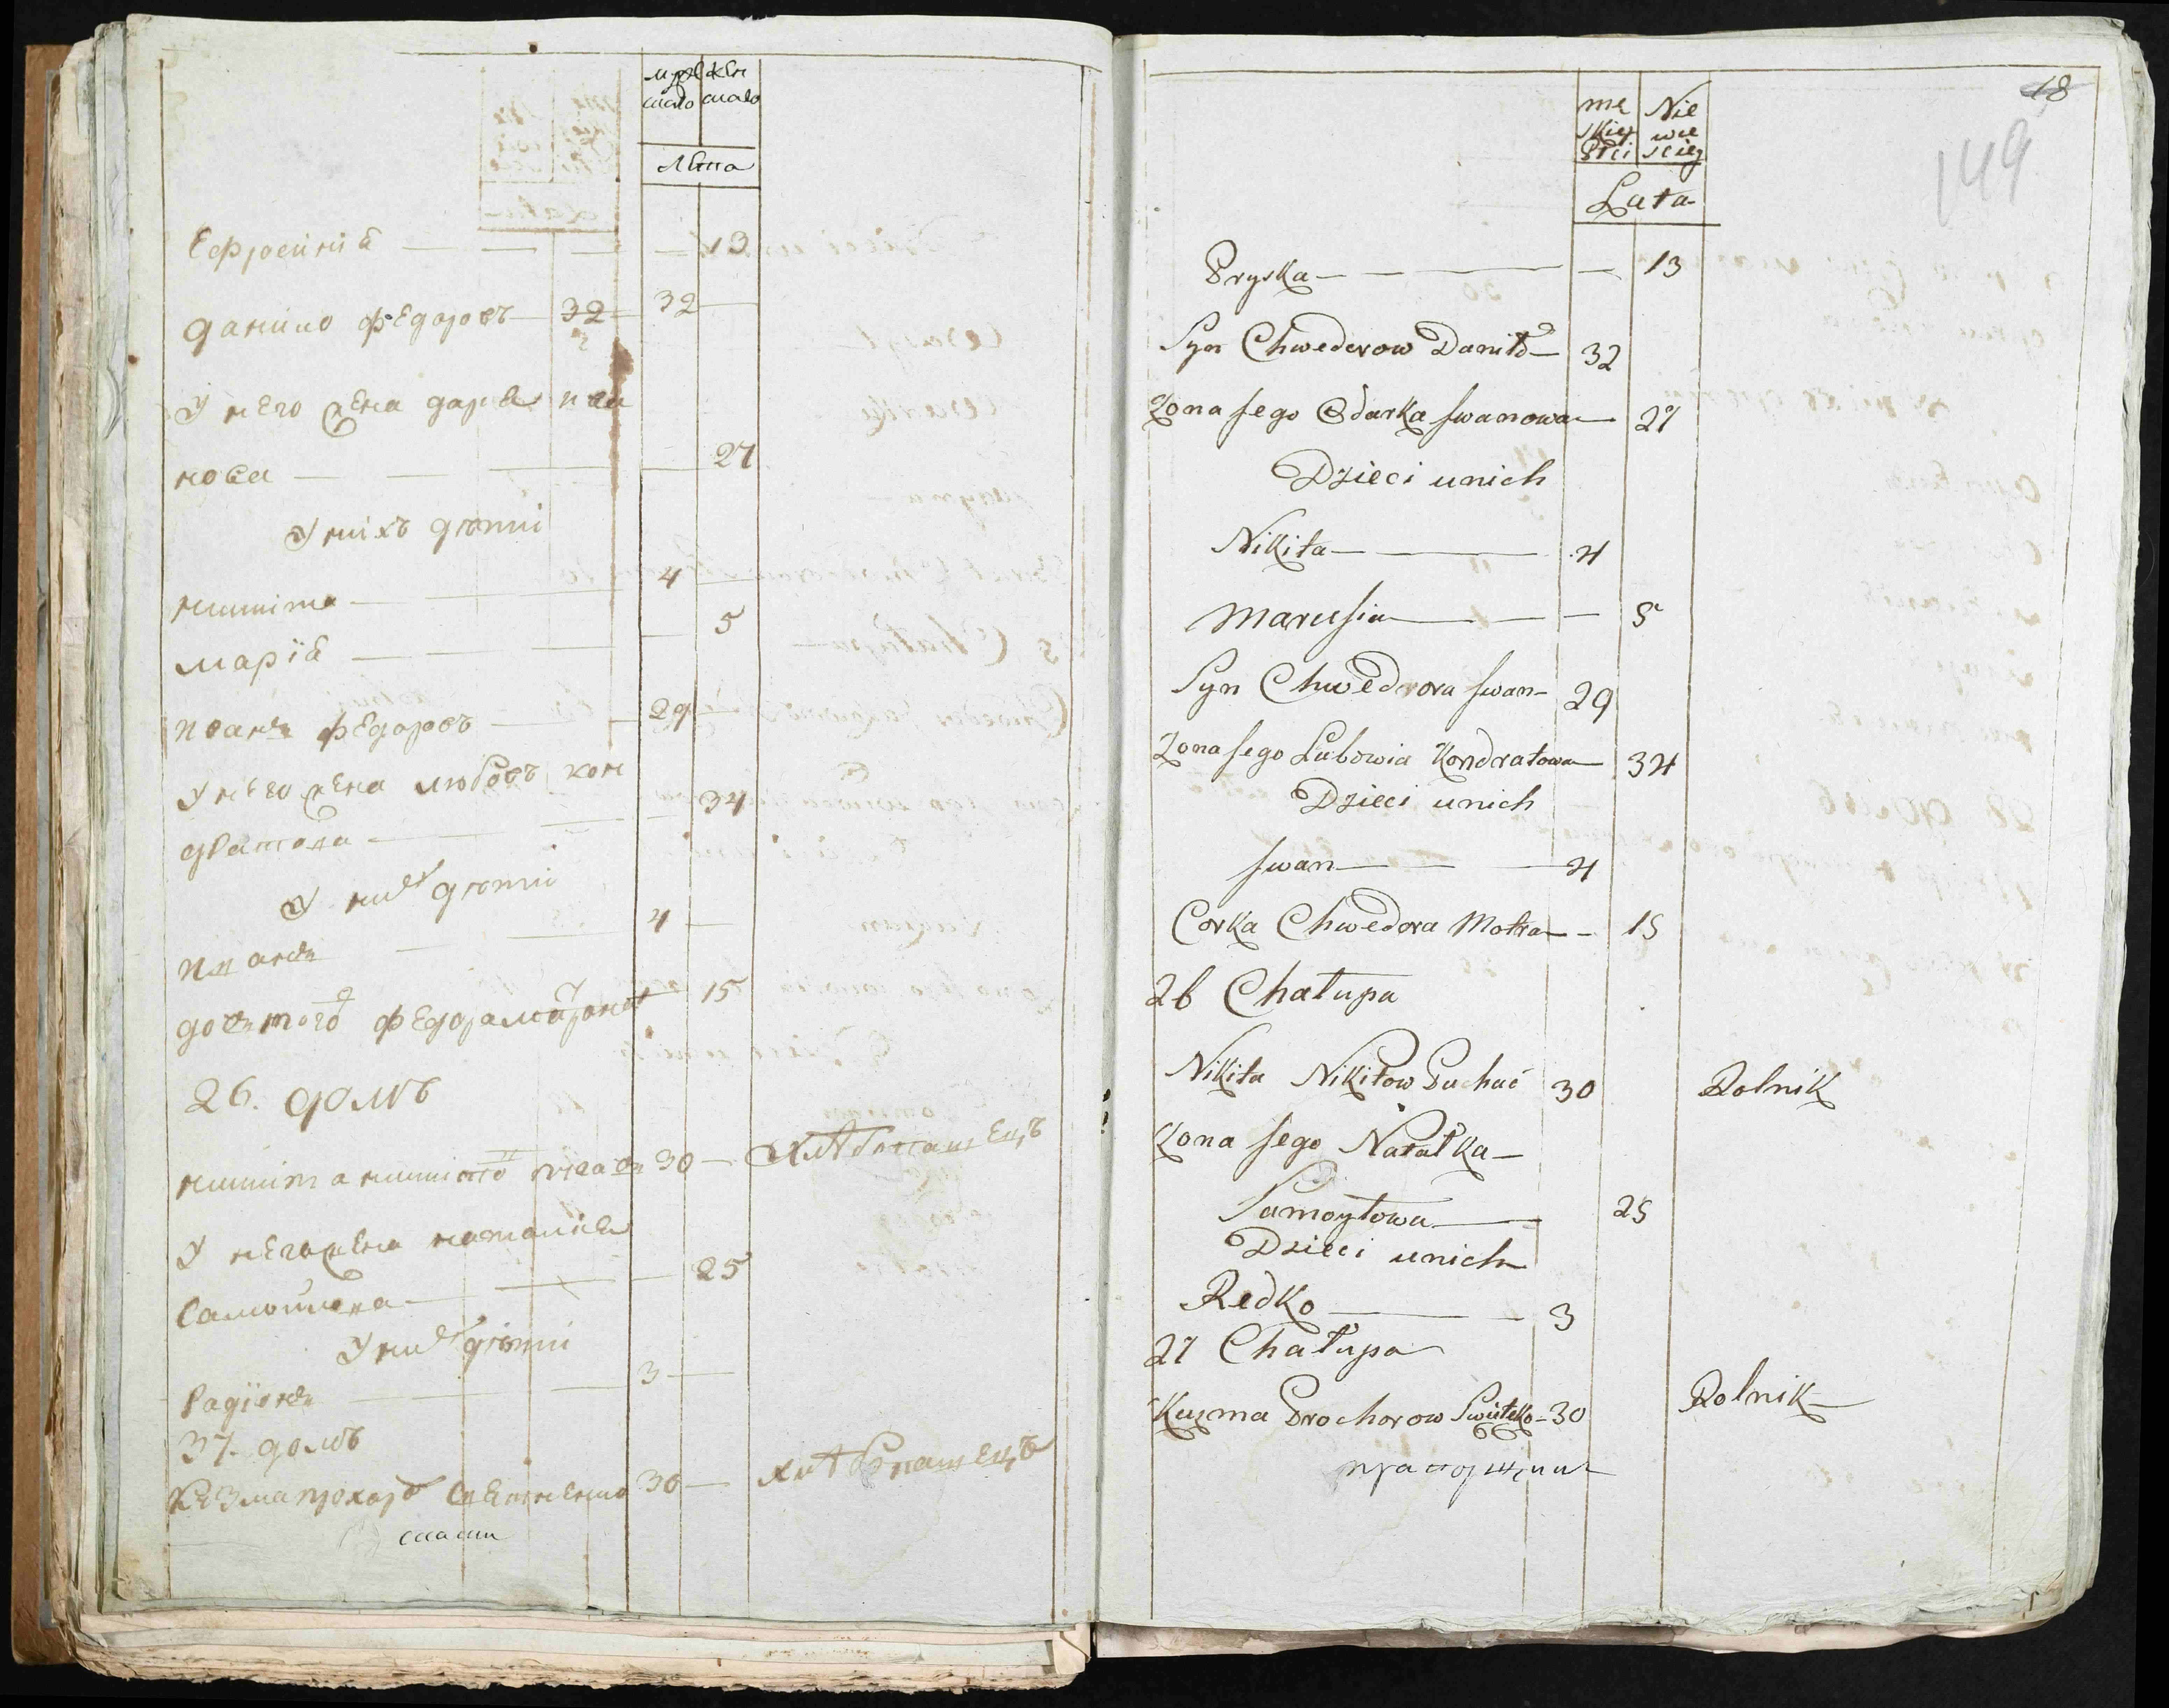 муже женс
каго скаго
Лѣта
Ефросинiѣ — — — — 13
Данило Федоровъ — 32 32 —
У него жена Дарья Ива
нова — — — — 27
У нихъ дѣти
Никита — — 4 —
Марiѣ — — — — 5
Иванъ Федоровъ — — 29 —
У него жена Любовъ Кон
дратова — — — 34
У них дѣти
Иванъ — — 4 —
Дочь того Федора Матрона 15
26. Домъ
Никита Никито Пугачъ 30 — Хлѣбопашецъ
У него жена Наталiя
Самойлова — — — 25
У них дѣти
Радiонъ — — 3 —
37. домъ
Кузма Прохоро Светненко 30 — Хлѣбопашецъ
18
149
me Nie
skiey wie
Płci sciey
Lata
Pryska — — — — 13
Syn Chwederow Daniło — 32
Zona Jego Odarka Jwanowa — 27
Dzieci unich
Nikita — — 4
Marusia — — — 5
Syn Chwedora Jwan — 29
Zona Jego Lubowia Kondratowa — 34
Dzieci unich
Jwan — — 4
Corka Chwedora Motra — — 15
26 Chałupa
Nikita Nikitow Puhač 30 Rolnik
Zona Jego Natałka —
Samoyłowa — 25
Dzieci unich
Redko — — 3
27 Chałupa
Kuzma Prochorow Switeko — 30 Rolnik —